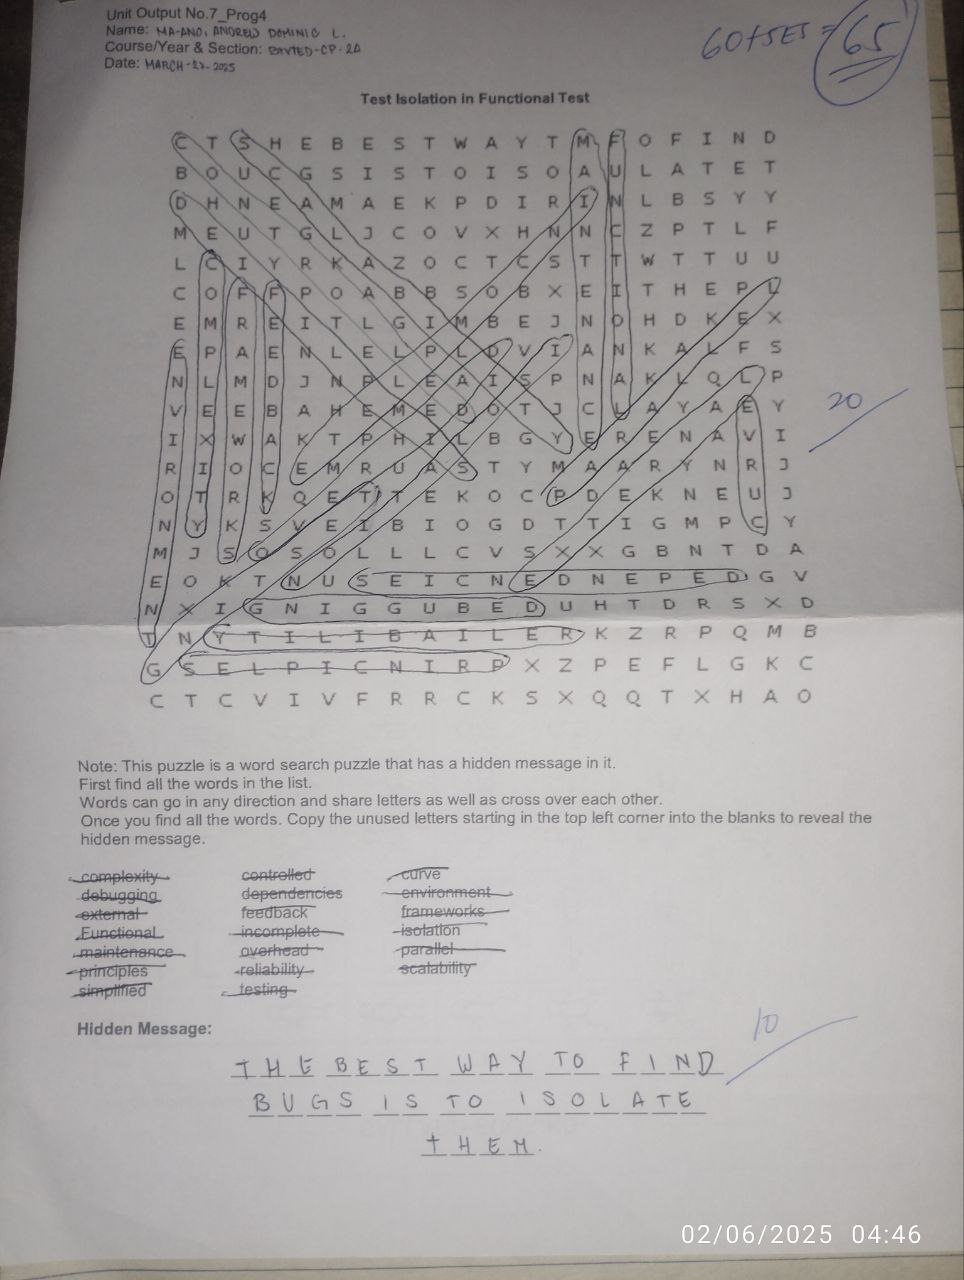 Unit Output No.7_Prog4
Name: MA-ANO, ANDREW DOMINIC L.
Course/Year & Section: BTVTED-CP-2A
Date: MARCH-27-2025
60+5E5 = 65
Test Isolation in Functional Test
C T S H E B E S T W A Y T M F O F I N D
B O U C G S I S T O I S O A U L A T E T
D H N E A M A E K P D I R I N L B S Y Y
M E U T G L J C O V X H N N C Z P T L F
L C I Y R K A Z O C T C S T T W T T U U
C O F F P O A B B S O B X E I T H E P L
E M R E I T L G I M B E J N O H D K E X
E P A E N L E L P L D V I A N K A L F S
N L M D J N P L E A I S P N A K L Q L P
V E E B A H E M E D O T J C L A Y A E Y
I X W A K T P H I L B G Y E R E N A V I
R I O C E M R U A S T Y M A A R Y N R J
O T R K Q E T T E K O C P D E K N E U J
N Y K S V E I B I O G D T T I G M P C Y
M J S O S O L L L C V S X X G B N T D A
E O K T N U S E I C N E D N E P E D G V
N X I G N I G G U B E D U H T D R S X D
T N Y T I L I B A I L E R K Z R P Q M B
G S E L P I C N I R P X Z P E F L G K C
C T C V I V F R R C K S X Q Q T X H A O
20
Note: This puzzle is a word search puzzle that has a hidden message in it.
First find all the words in the list.
Words can go in any direction and share letters as well as cross over each other.
Once you find all the words. Copy the unused letters starting in the top left corner into the blanks to reveal the
hidden message.
complexity controlled curve
debugging dependencies environment
external feedback frameworks
Functional incomplete isolation
maintenance overhead parallel
principles reliability scalability
simplified testing
Hidden Message:
10
THE BEST WAY TO FIND
BUGS IS TO ISOLATE
THEM.
02/06/2025 04:46